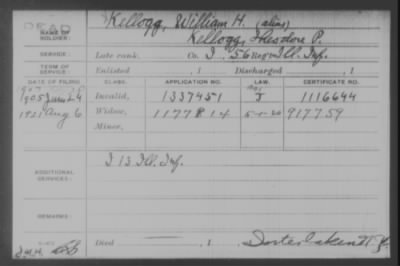 DEAD
NAME OF SOLDIER: Kellogg, William H. (alias)
Kellogg, Theodore P.
SERVICE: Late rank, Co. I, 56 Reg't Ill. Inf.
TERM OF SERVICE: Enlisted , 1 Discharged , 1
DATE OF FILING. CLASS. APPLICATION NO. LAW. CERTIFICATE NO.
1905 June 24 Invalid, 1337451 J 1116644
1921 Aug 6 Widow, 1177814 5-1-20 917759
Minor,
ADDITIONAL SERVICES: I 13 Ill. Inf.
REMARKS:
Died , 1 ,